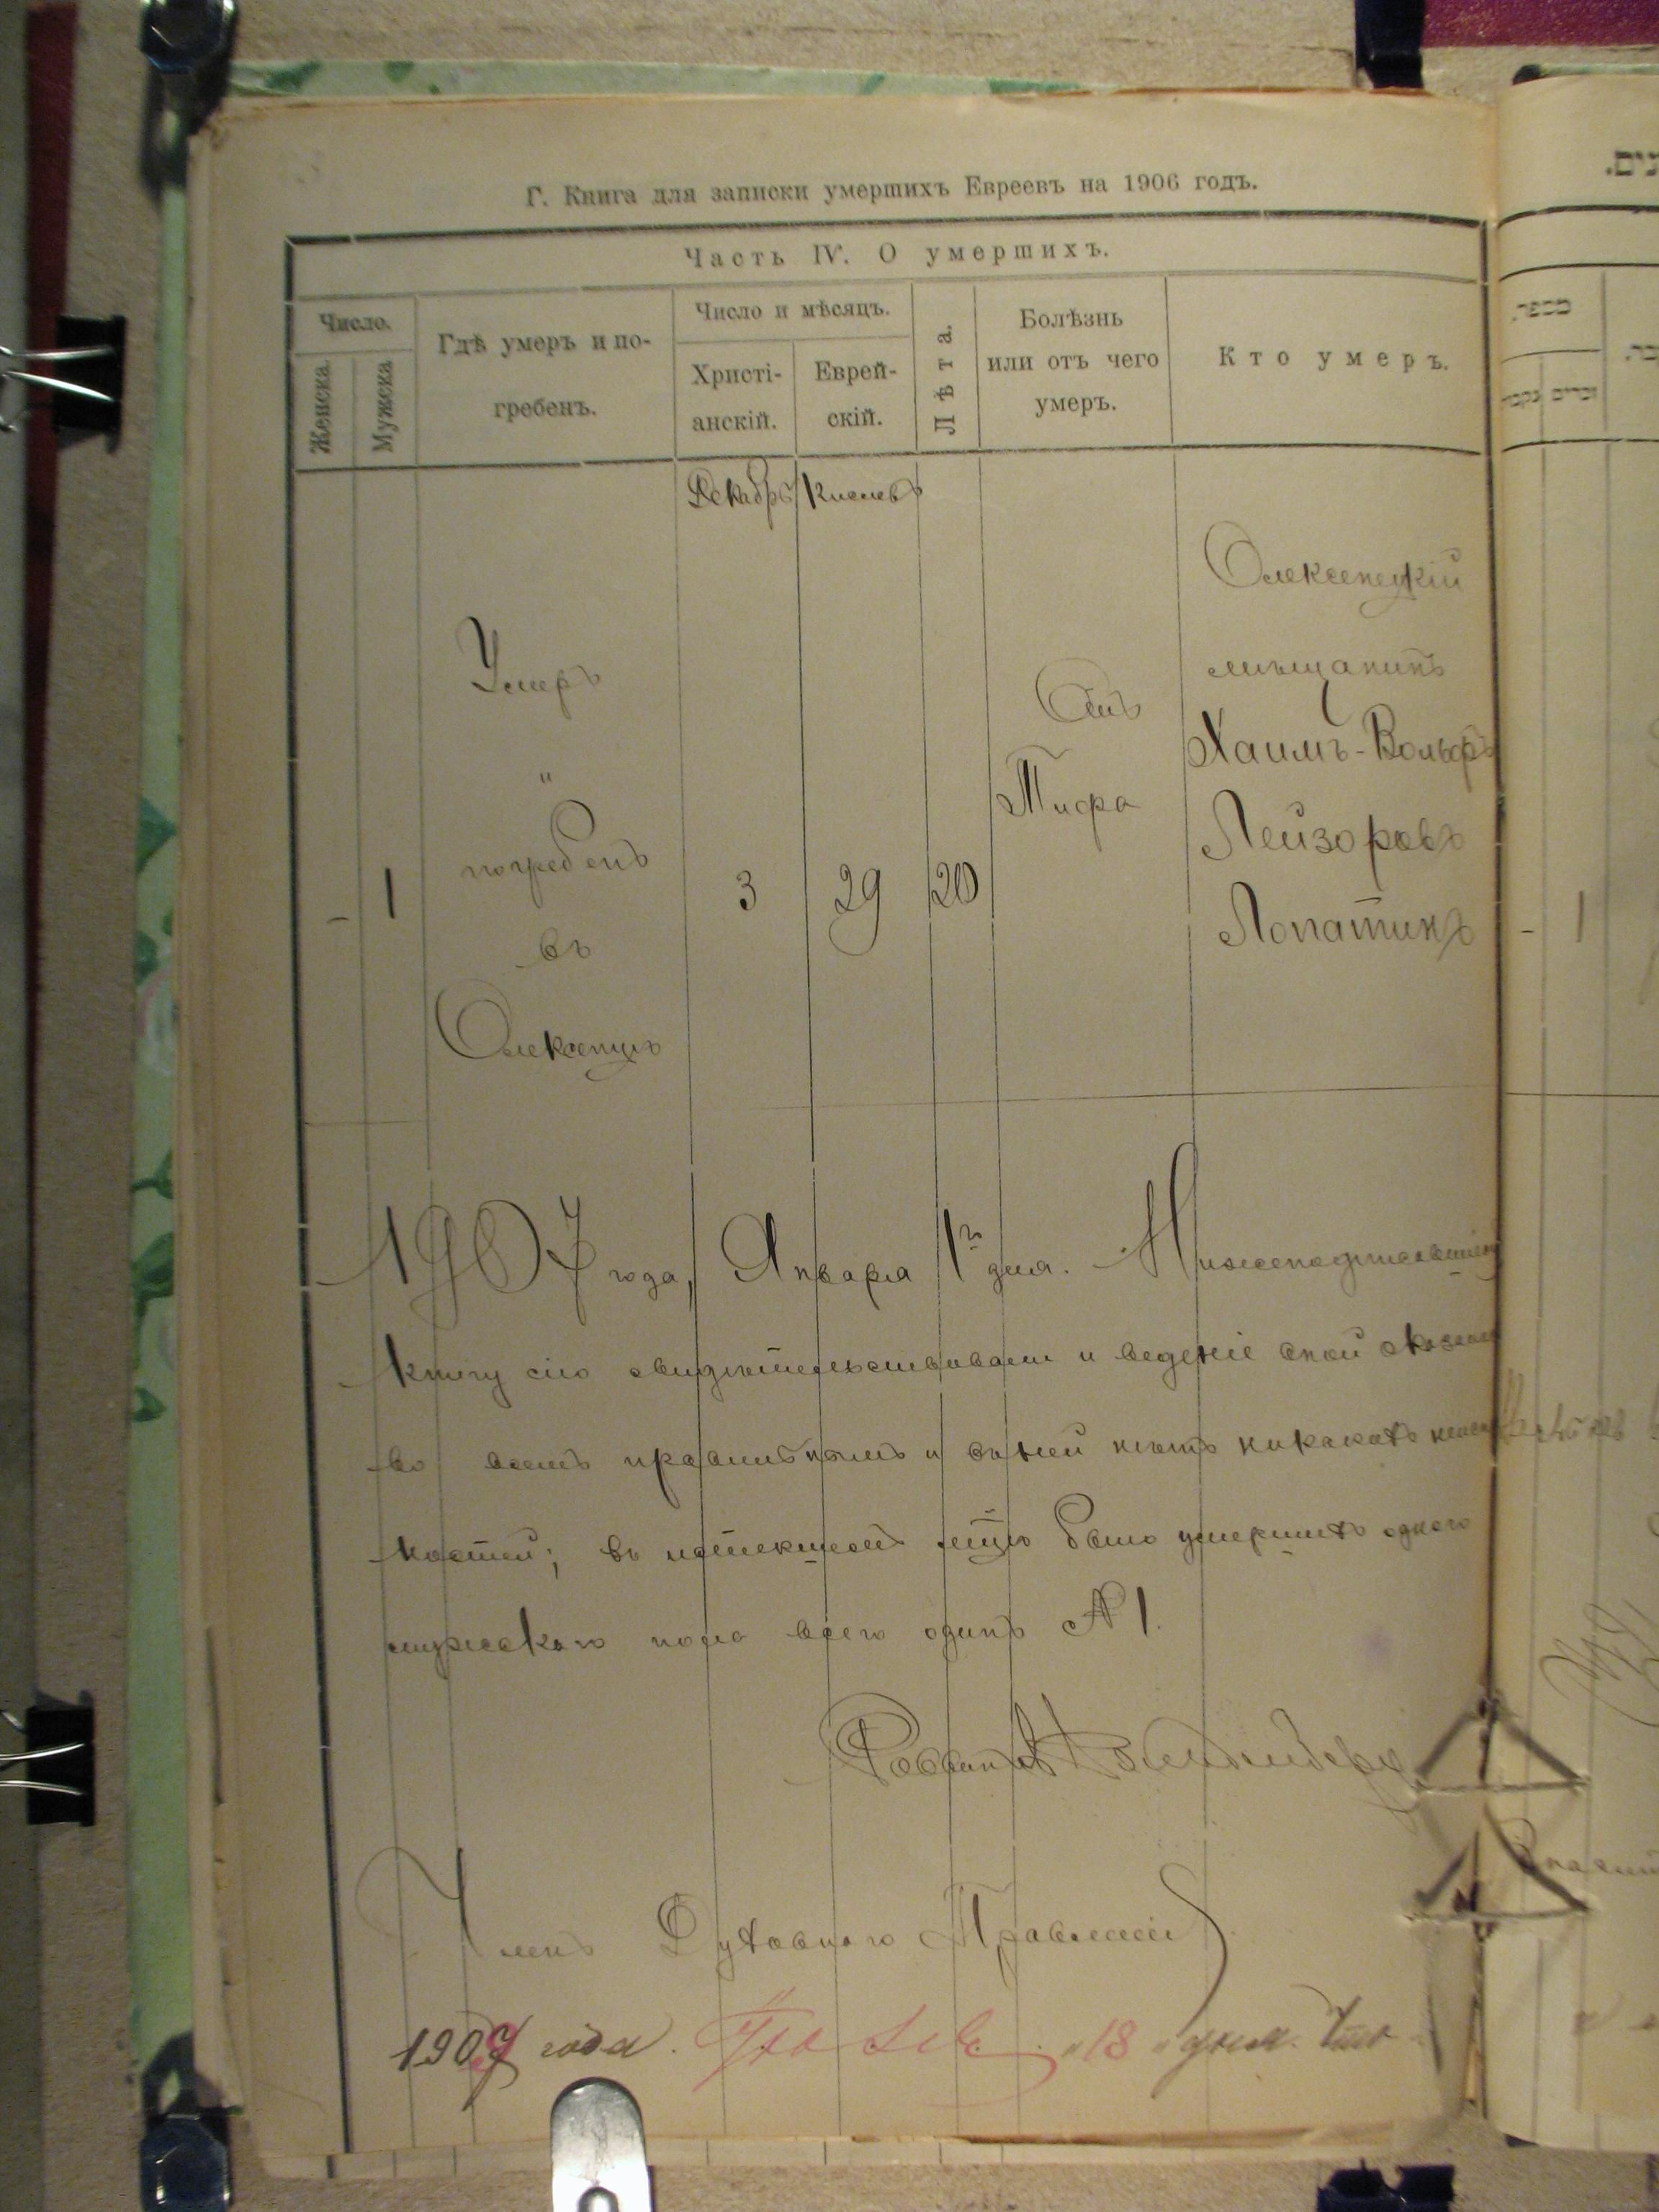 Г. Книга для записки умершихъ Евреевъ на 1906 годъ.
Часть IV. О умершихъ.
Число.
Женска
Мужска
Гдѣ умеръ и по-
гребенъ.
Число и мѣсяцъ.
Христі-
анскій.
Еврей-
скій.
Лѣта.
Болѣзнь
или отъ чего
умеръ.
Кто умеръ.
Декабрь
Кислевъ
-
1
Умеръ
и
погребенъ
въ
Олексенцѣ
3
29
20
Отъ
Тифа
Олексенецкій
мѣщанинъ
Хаимъ-Вольфъ
Лейзоровъ
Лопатинъ
1907 года, Января 1го дня. Нижеподписавшіеся
книгу сію свидѣтельствовали и веденіе оной
во всемъ правильнымъ и въ ней нѣтъ никакихъ
ностей; въ истекшемъ мѣцѣ было умершихъ одного
мужескаго пола всего одинъ №1.
Раввинъ
Членъ Духовнаго Правленія
1907 года. 18 дня. что
מספר
זכרים נקבו
- 1